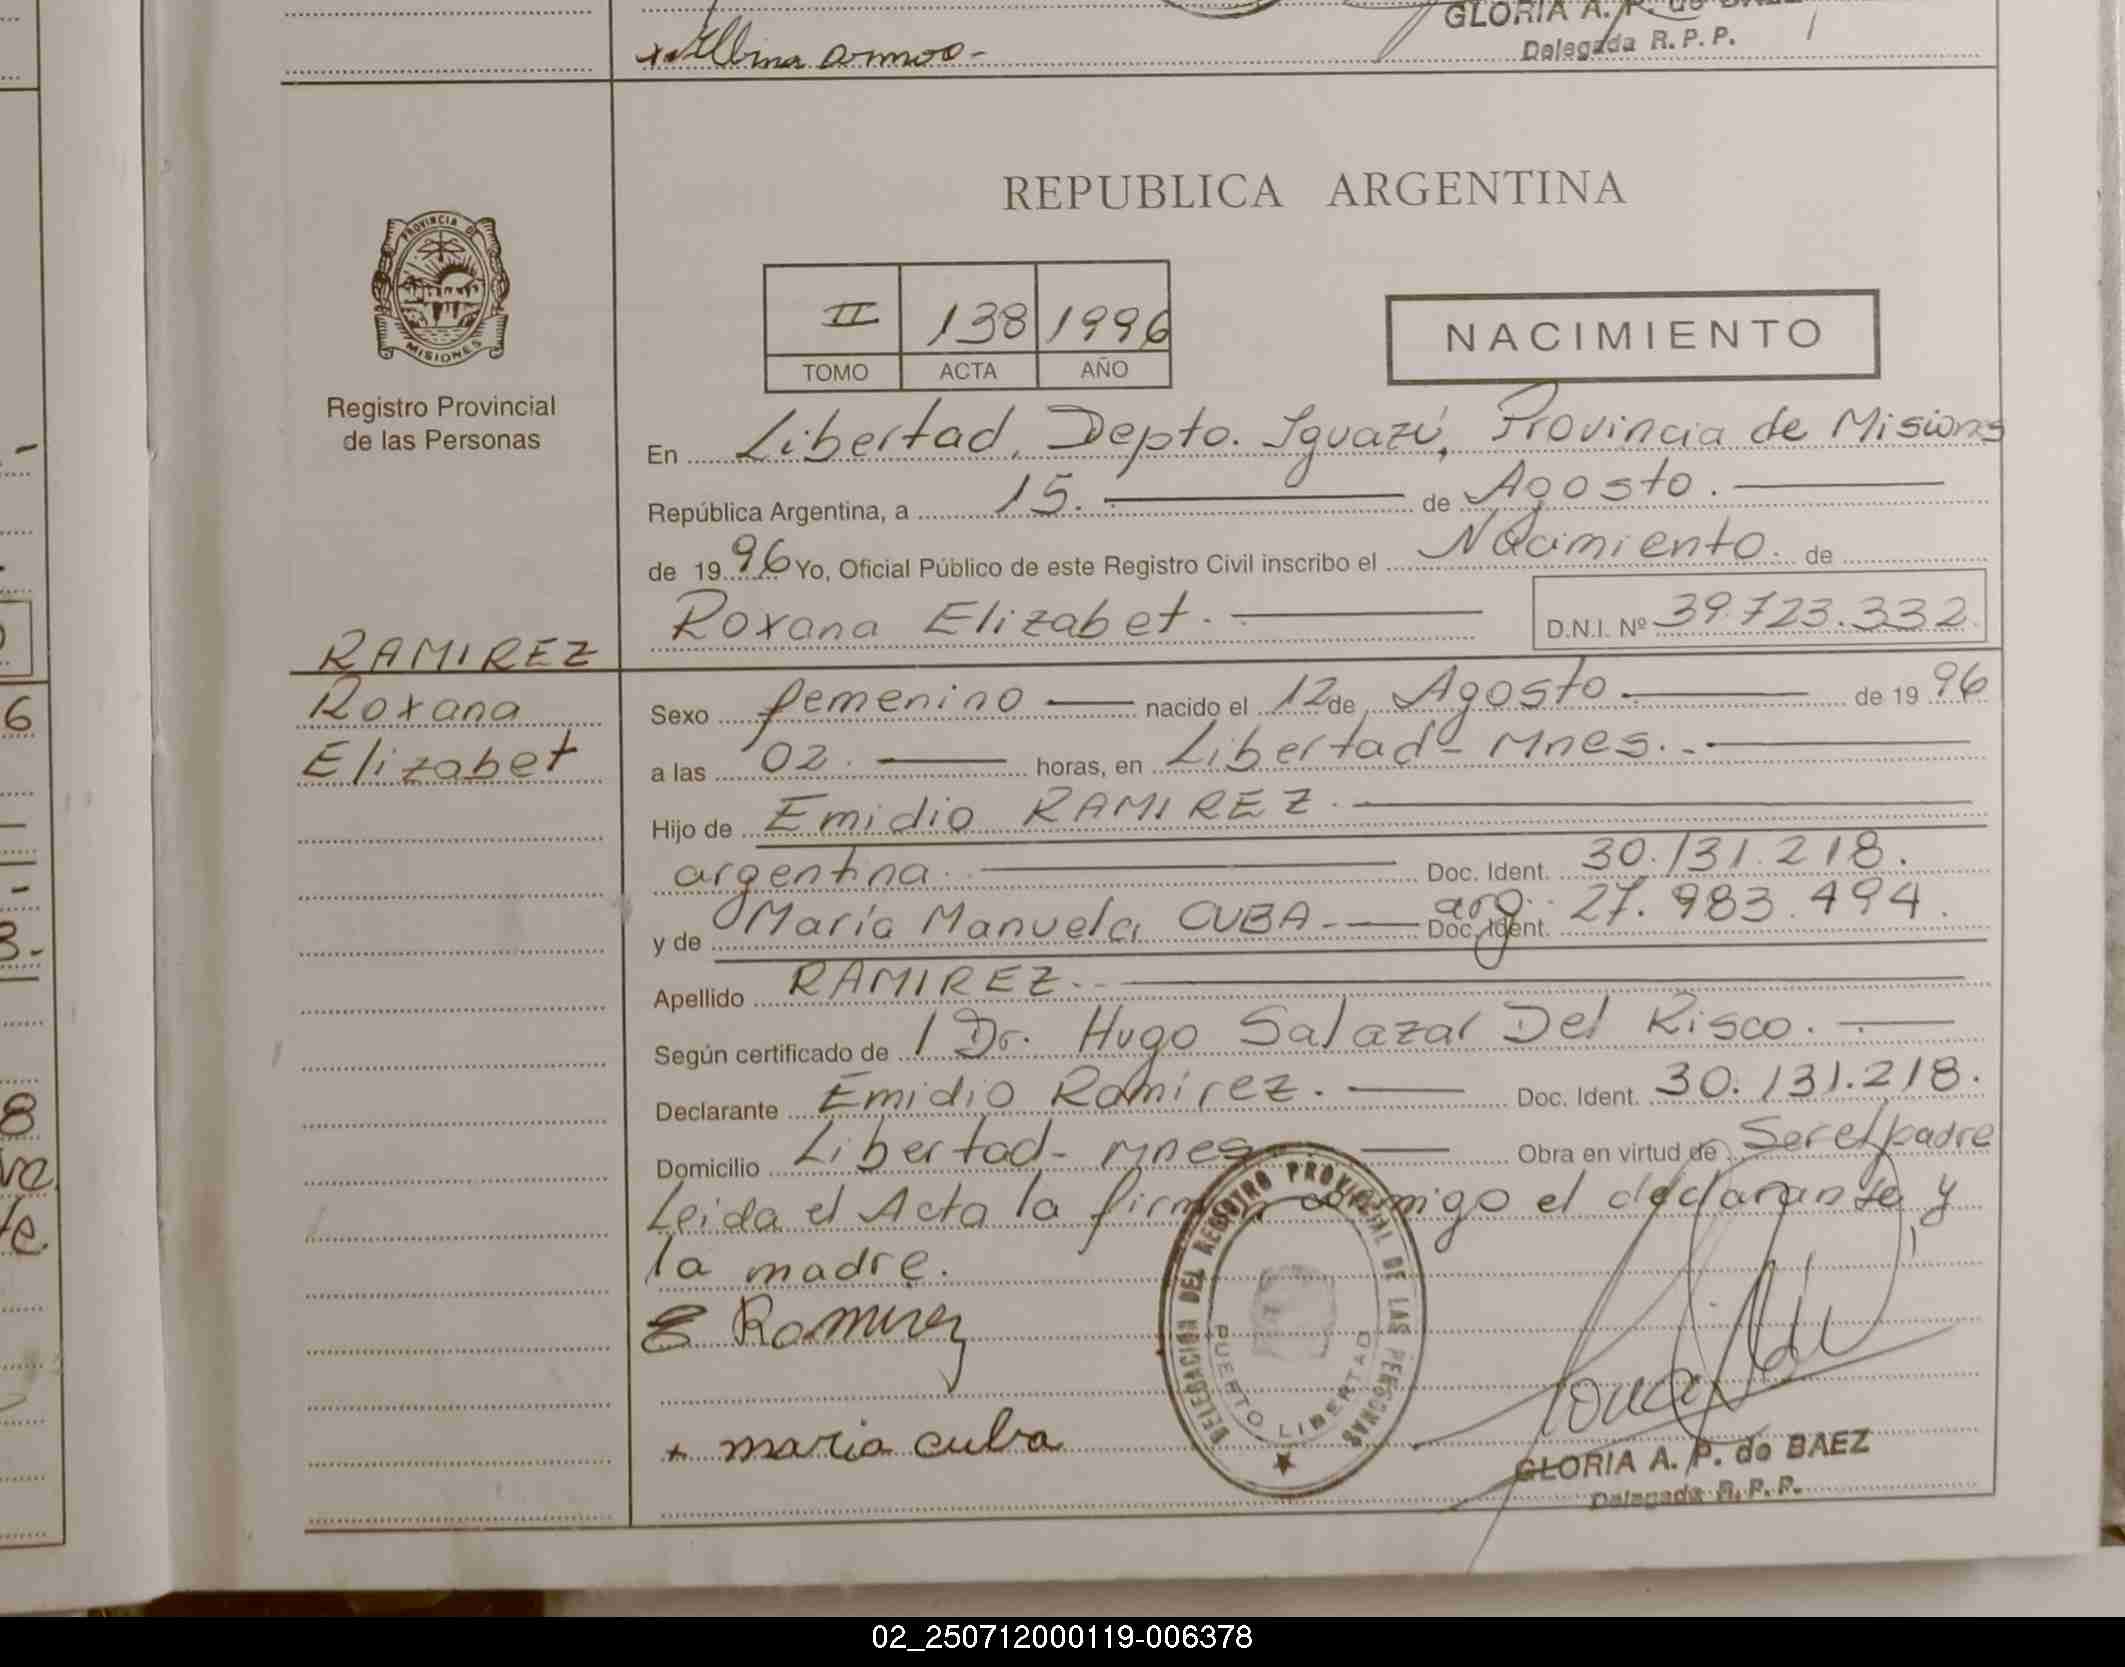 GLORIA A. P. de BAEZ
Delegada R. P. P.
REPUBLICA ARGENTINA
PROVINCIA DE
MISIONES
Registro Provincial
de las Personas
II 138 1996
TOMO ACTA AÑO
NACIMIENTO
En Libertad, Depto. Iguazú, Provincia de Misions
República Argentina, a 15. de Agosto.
de 1996 Yo, Oficial Público de este Registro Civil inscribo el Nacimiento. de
Roxana Elizabet. D.N.I. Nº 39.723.332
RAMIREZ
Roxana
Elizabet
Sexo femenino nacido el 12 de Agosto de 1996
a las 02. horas, en Libertad - Mnes.-
Hijo de Emidio RAMIREZ.
argentina. Doc. Ident. 30.131.218.
y de María Manuela CUBA.- arg. Doc. Ident. 27.983.494.
Apellido RAMIREZ.-
Según certificado de / Dr. Hugo Salazar Del Risco.
Declarante Emidio Ramírez. Doc. Ident. 30.131.218.
Domicilio Libertad - Mnes Obra en virtud de Ser el padre
Leida el Acta la firman conmigo el declarante y
la madre.
E Ramirez
+ maria cuba
DELEGACION DEL REGISTRO PROVINCIAL DE LAS PERSONAS
PUERTO LIBERTAD
GLORIA A. P. de BAEZ
Delegada R. P. P.
02_250712000119-006378